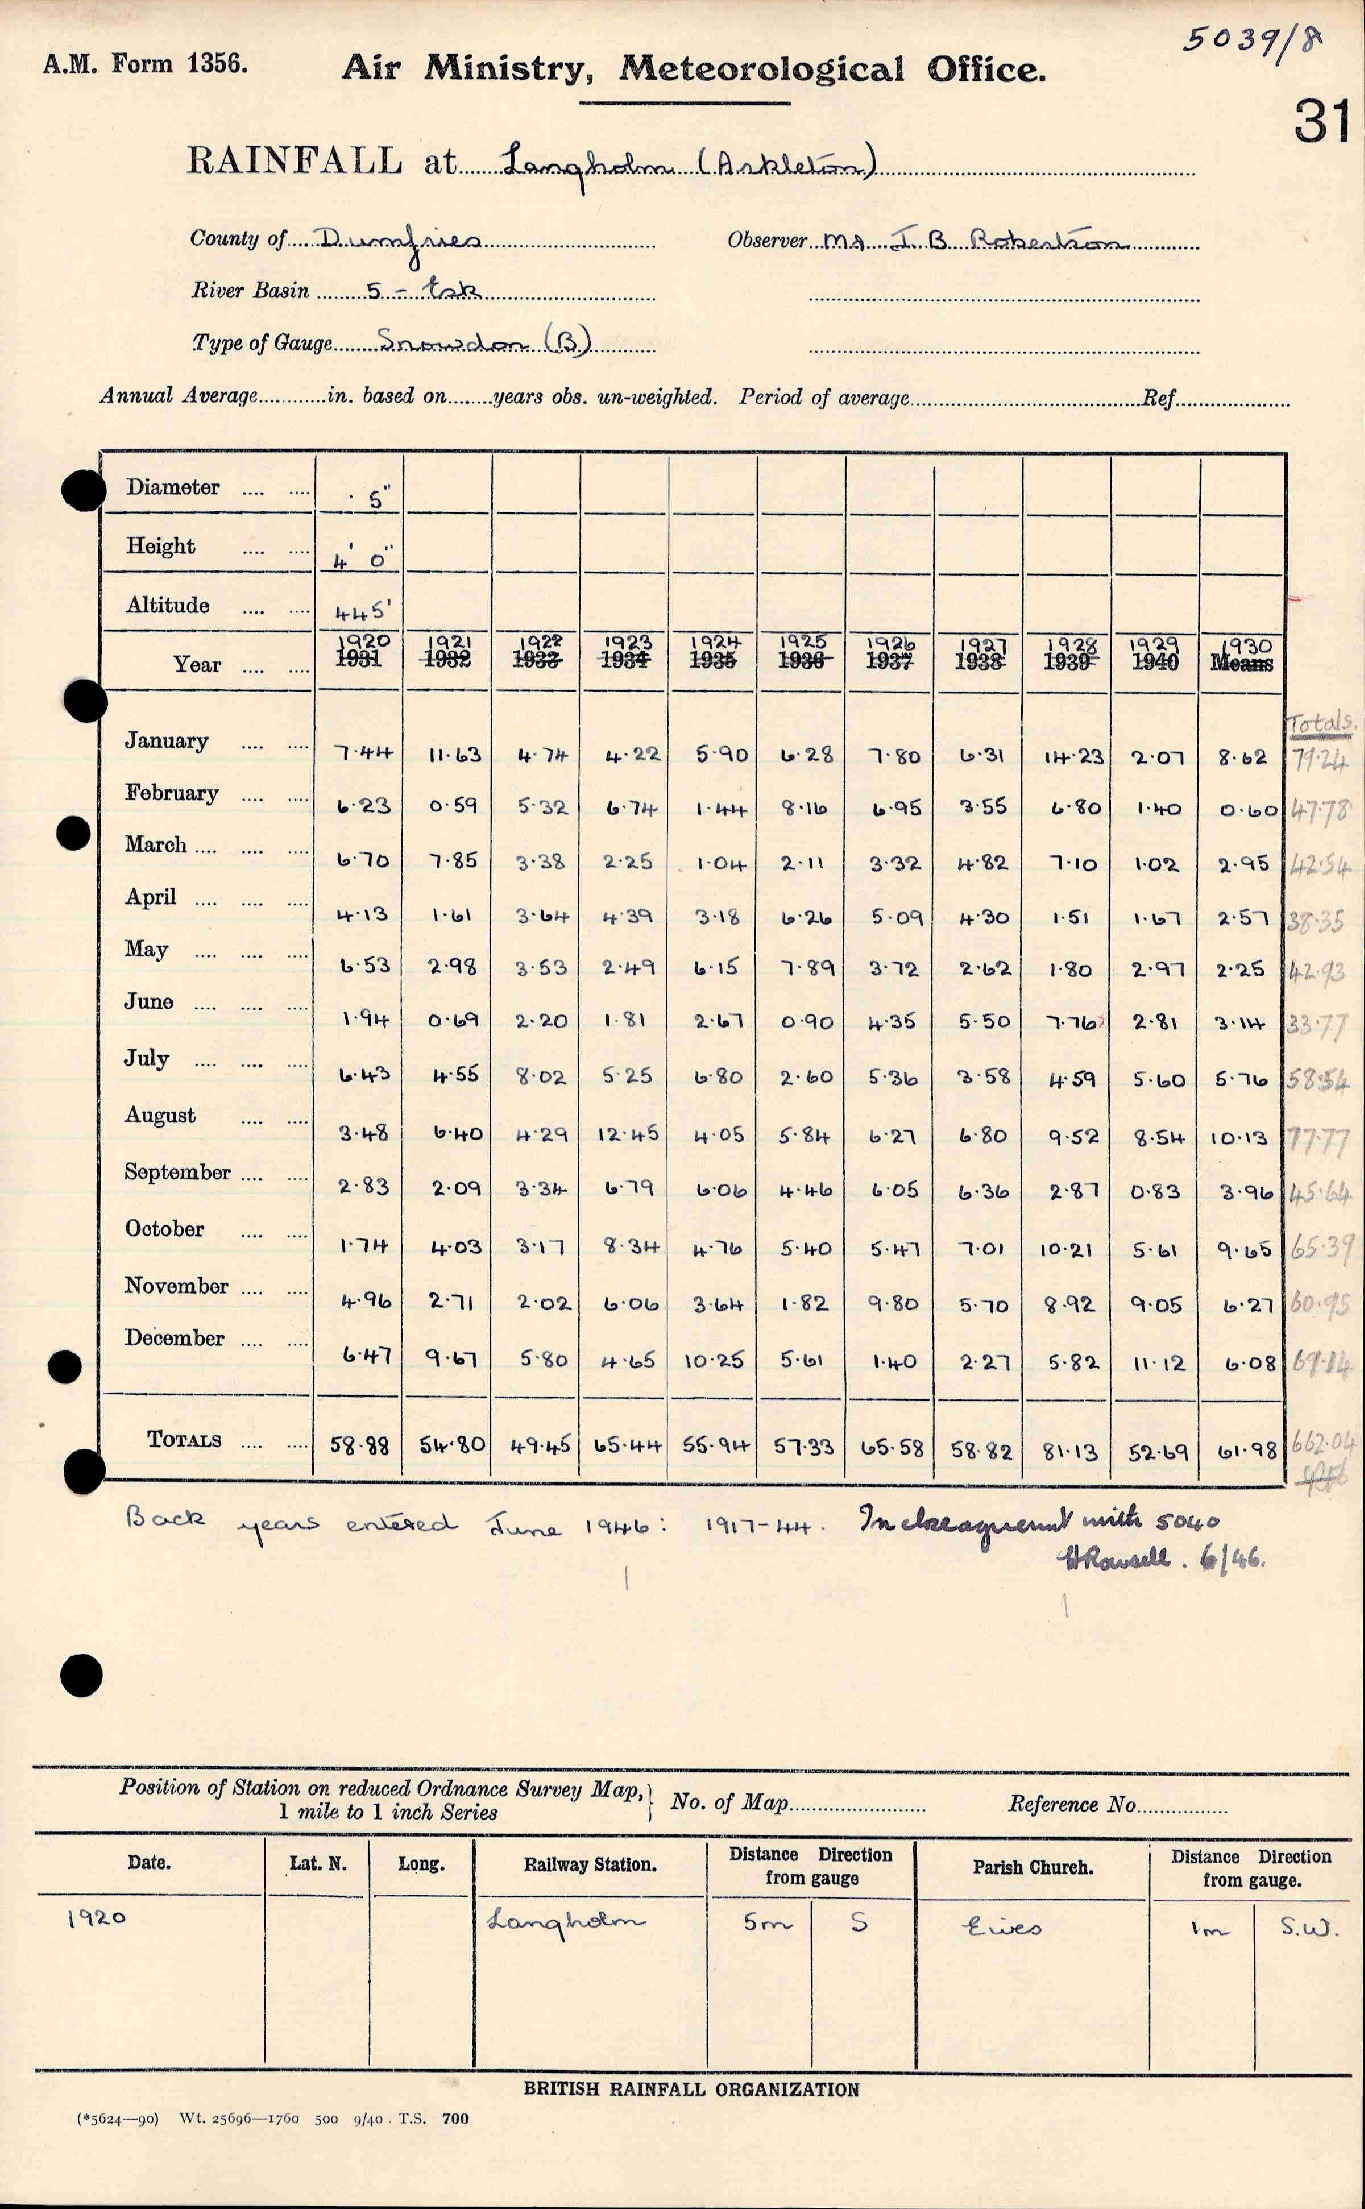 5039/8
A.M. Form 1356.
Air Ministry, Meteorological Office.
31
RAINFALL at Langholm (Arkleton)
County of Dumfries Observer Mr J. B. Robertson
River Basin 5 - Esk
Type of Gauge Snowdon (B)
Annual Average in. based on years obs. un-weighted. Period of average Ref.
Diameter 5"
Height 4' 0"
Altitude 445'
1920 1921 1922 1923 1924 1925 1926 1927 1928 1929 1930
Year 1931 1932 1933 1934 1935 1936 1937 1938 1939 1940 Means
Totals.
January 7.44 11.63 4.74 4.22 5.90 6.28 7.80 6.31 14.23 2.07 8.62 79.24
February 6.23 0.59 5.32 6.74 1.44 8.16 6.95 3.55 6.80 1.40 0.60 47.78
March 6.70 7.85 3.38 2.25 1.04 2.11 3.32 4.82 7.10 1.02 2.95 42.54
April 4.13 1.61 3.64 4.39 3.18 6.26 5.09 4.30 1.51 1.67 2.57 38.35
May 6.53 2.98 3.53 2.49 6.15 7.89 3.72 2.62 1.80 2.97 2.25 42.93
June 1.94 0.69 2.20 1.81 2.67 0.90 4.35 5.50 7.76 2.81 3.14 33.77
July 6.43 4.55 8.02 5.25 6.80 2.60 5.36 3.58 4.59 5.60 5.76 58.54
August 3.48 6.40 4.29 12.45 4.05 5.84 6.27 6.80 9.52 8.54 10.13 77.77
September 2.83 2.09 3.34 6.79 6.06 4.46 6.05 6.36 2.87 0.83 3.96 45.64
October 1.74 4.03 3.17 8.34 4.76 5.40 5.47 7.01 10.21 5.61 9.65 65.39
November 4.96 2.71 2.02 6.06 3.64 1.82 9.80 5.70 8.92 9.05 6.27 60.95
December 6.47 9.67 5.80 4.65 10.25 5.61 1.40 2.27 5.82 11.12 6.08 69.14
TOTALS 58.88 54.80 49.45 65.44 55.94 57.33 65.58 58.82 81.13 52.69 61.98 662.04
Back years entered June 1946: 1917-44. In close agreement with 5040
HRowsell. 6/46.
Position of Station on reduced Ordnance Survey Map,
1 mile to 1 inch Series
No. of Map Reference No.
Date. Lat. N. Long. Railway Station. Distance Direction from gauge Parish Church. Distance Direction from gauge.
1920 Langholm 5m S Ewes 1m S.W.
BRITISH RAINFALL ORGANIZATION
(*5624—90) Wt. 25696—1760 500 9/40. T.S. 700